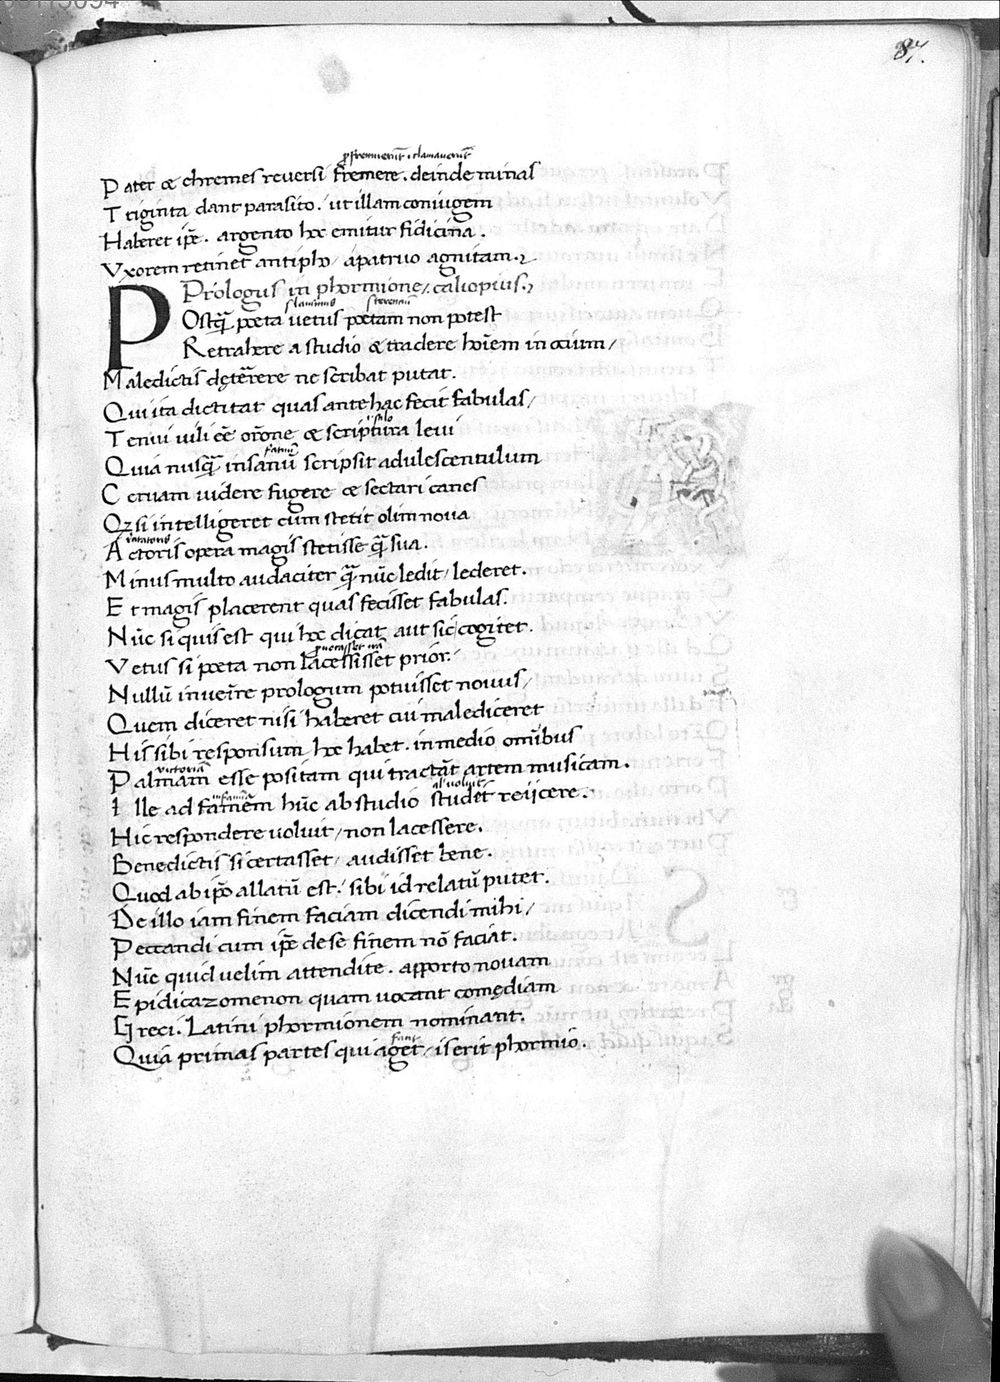 87.
p̄ fremuerūt .i. clamauerūt
Pater & chremes reuersi fremere. deinde minas
Triginta dant parasito. ut illam coniugem
Haberet ip̄e. argento hoc emitur fidicina.
Vxorem retinet antipho / apatruo agnitam.
Prologus in phormione / caliopius.
Postq̄ poeta uetus poetam non potest
Retrahere a studio & tradere hoīem in ocium /
Maledictis dęterrere ne scribat putat.
Qui ita dictitat quas ante hac fecit fabulas /
Tenui uili eē orōne & scriptura leui
Quia nusq̄ insanū scripsit adulescentulum
Ceruam uidere fugere & sectari canes
Qz si intelligeret cum stetit olim noua
Actoris opera magis stetisse q̄ sua.
Minus multo audaciter q̄ nūc ledit / lederet.
Et magis placerent quas fecisset fabulas.
Nūc si quis est qui hoc dicat aut sic cogitet.
Vetus si poeta non lacessisset prior.
Nullū inuenīre prologum potuisset nouus /
Quem diceret nisi haberet cui malediceret
His sibi responsum hoc habet. in medio omībus
uictoriā
Palmam esse positam qui tractāt artem musicam.
Ille ad famem hūc ab studio studet reiicere.
Hic respondere uoluit / non lacessere.
Benedictis si certasset / audisset bene.
Quod ab ip̄o allatū est. sibi id relatū putet.
De illo iam finem faciam dicendi mihi /
Peccandi cum ip̄e de se finem nō faciat.
Nūc quid uelim attendite. apporto nouam
Epidicazomenon quam uocant comędiam
Greci. Latini phormionem nominant.
Quia primas partes qui aget / is erit phormio.